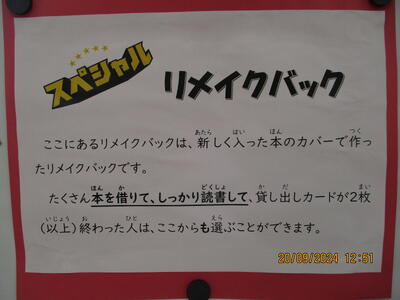 スペシャル リメイクバック
ここにあるリメイクバックは、新しく入った本のカバーで作っ
たリメイクバックです。
たくさん本を借りて、しっかり読書して、貸し出しカードが2枚
(以上)終わった人は、ここからも選ぶことができます。
20/09/2024 12:51